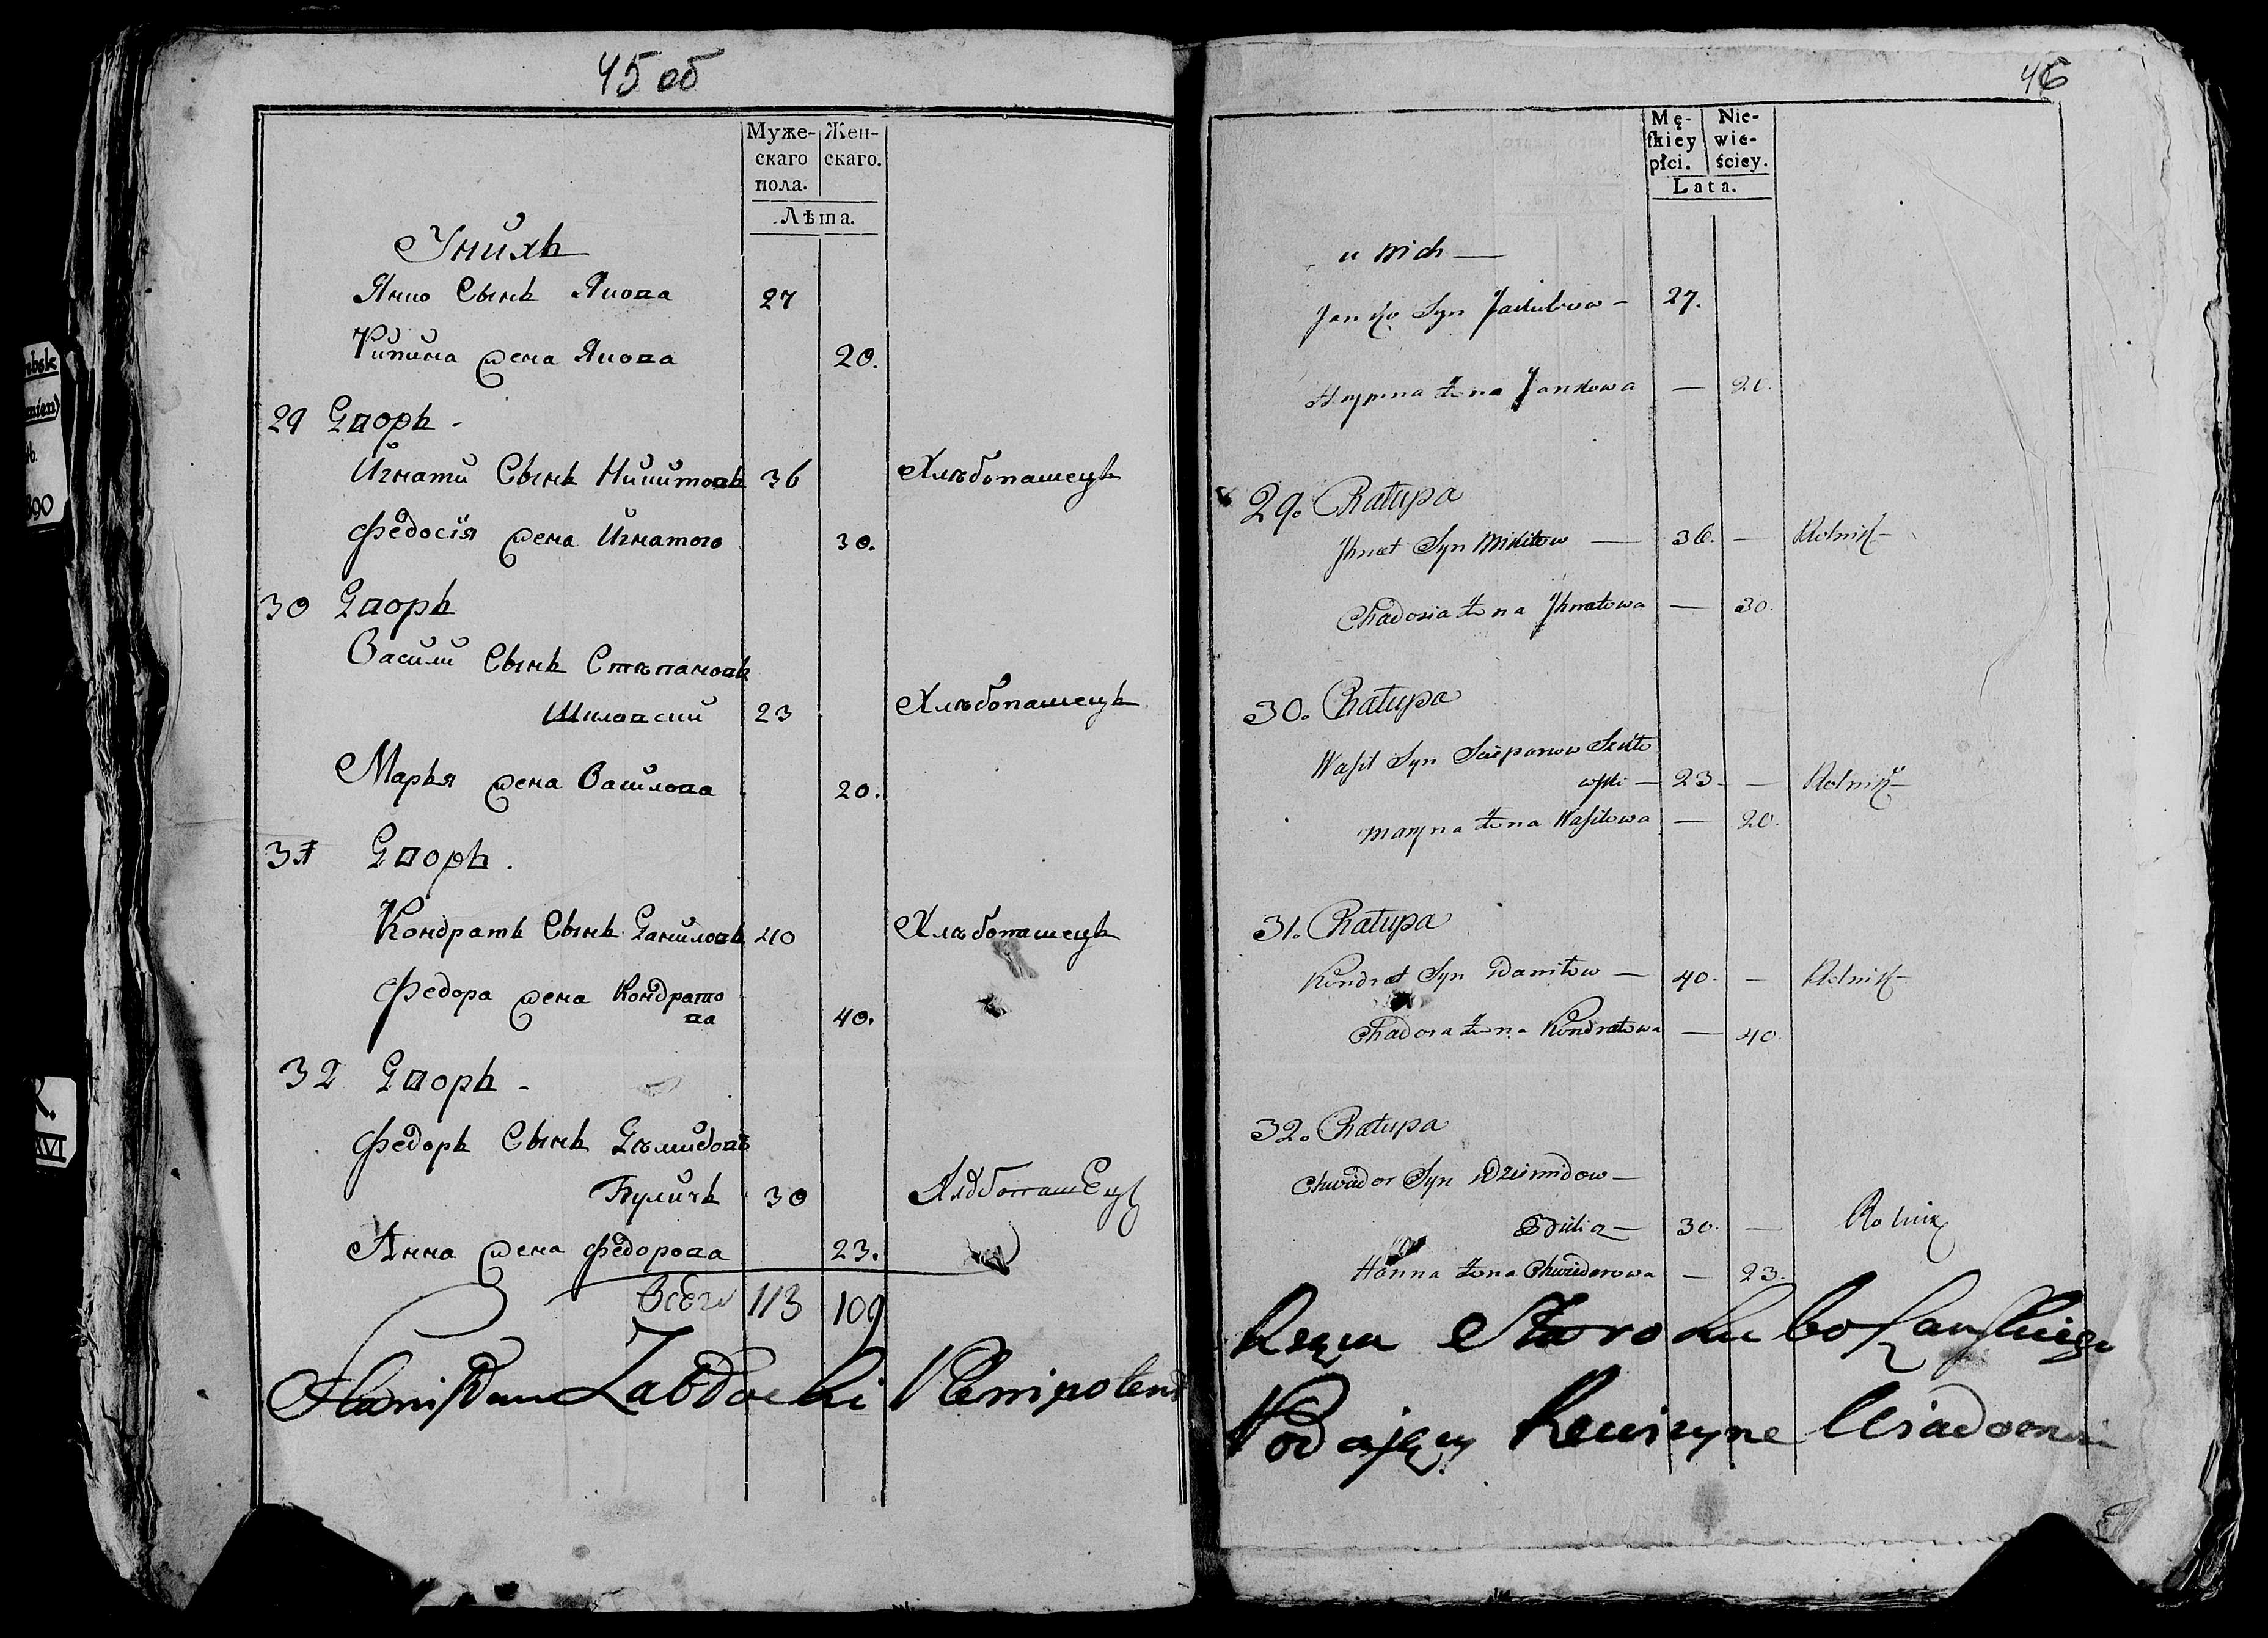 45 об
Муже-
скаго
пола.
Жен-
скаго.
Лѣта.
У нихъ
Янко Сынъ Якова 27
жена Якова 20.
29 Дворъ -
Игнати Сынъ Никитовъ 36 Хлѣбопашецъ
Федосія жена Игнатого 30.
30 Дворъ
Васили Сынъ Стѣпановъ
23 Хлѣбопашецъ
Марья жена Васылова 20.
31 Дворъ.
Кондратъ Сынъ Даниловъ 40 Хлѣбопашецъ
Федора жена Кондрато
ва 40.
32 Дворъ -
Федоръ Сынъ Дѣмидовъ
Буличъ 30
Анна жена Федорова 23.
Всего 113 109
Plenipotent
46
Mę-
ſkiey
płci.
Nie-
wie-
ściey.
Lata.
u nich —
Janko Syn 27.
żona Jankowa — 20.
29. Chałupa
Ihnat Syn Mikitow — 36. — Rolnik —
Chadosia żona Ihnatowa — 30.
30. Chałupa
Waſil Syn
wſki — 23. — Rolnik —
Maryna żona Waſilowa — 20.
31. Chałupa
Kondrat Syn Daniłow — 40. — Rolnik —
Chadora żona Kondratowa — 40.
32. Chałupa
Chwiedor Syn Dziemidow —
Bulicz — 30. — Rolnik
Hanna żona Chwiedorowa — 23.
Podający